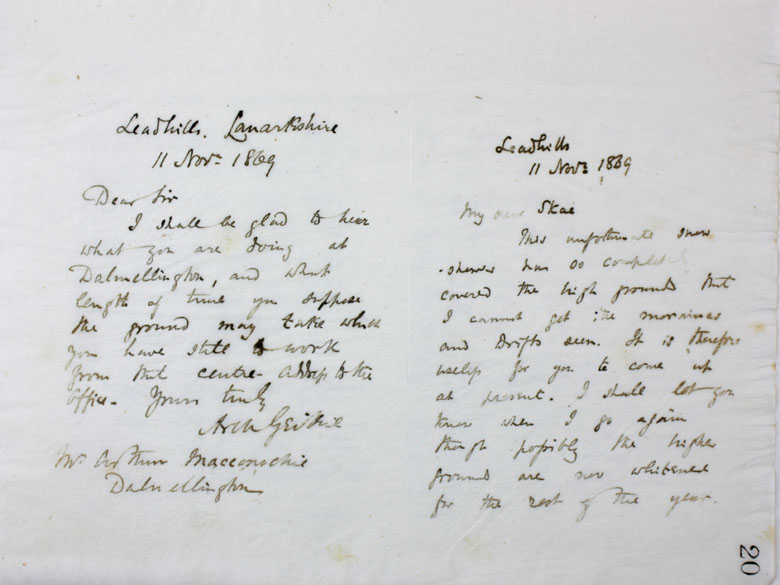 Leadhills. Lanarkshire
11 Novr. 1869
Dear Sir
I shall be glad to hear
what you are doing at
Dalmellington, and what
length of time you suppose
the ground may take which
you have still to work
from that centre - Address to the
Office - Yours truly
Arch Geikie
Mr. Arthur Macconochie
Dalmellington
Leadhills
11 Novr. 1869
My dear Skae
This unfortunate snow
-shower has so complete
covered the high grounds that
I cannot get the moraines
and drifts seen. It is therefore
useless for you to come up
at present. I shall let you
know when I go again
though possibly the higher
grounds are now whitened
for the rest of the year.
20